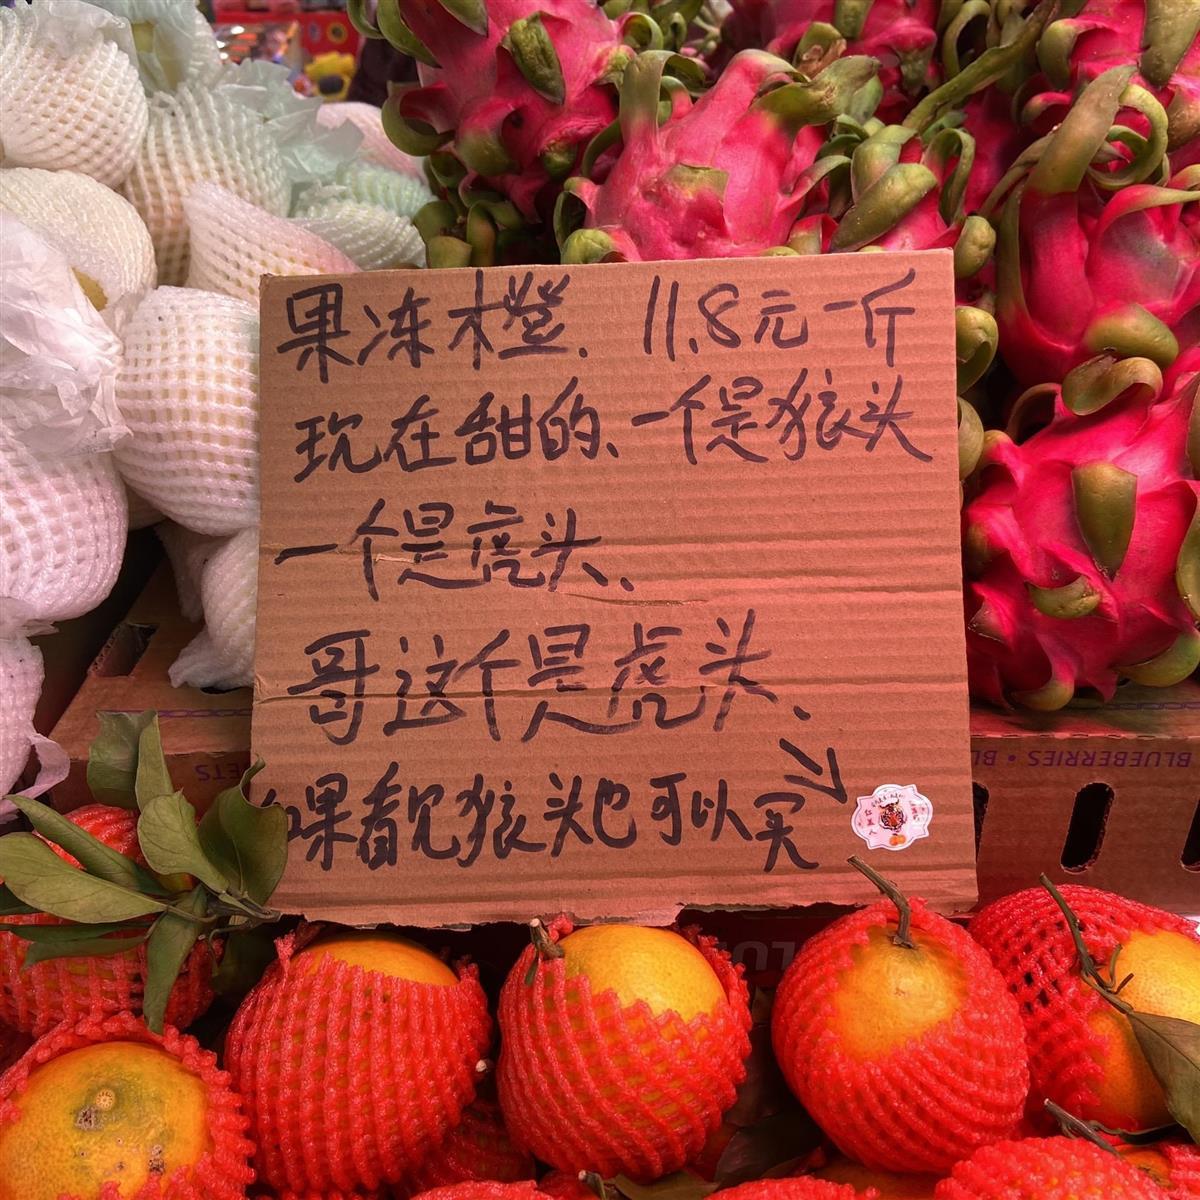 果冻橙、11.8元一斤
现在甜的、一个是狼头
一个是虎头、
哥这个是虎头、
如果看见狼头也可以买
红美人
BLUEBERRIES